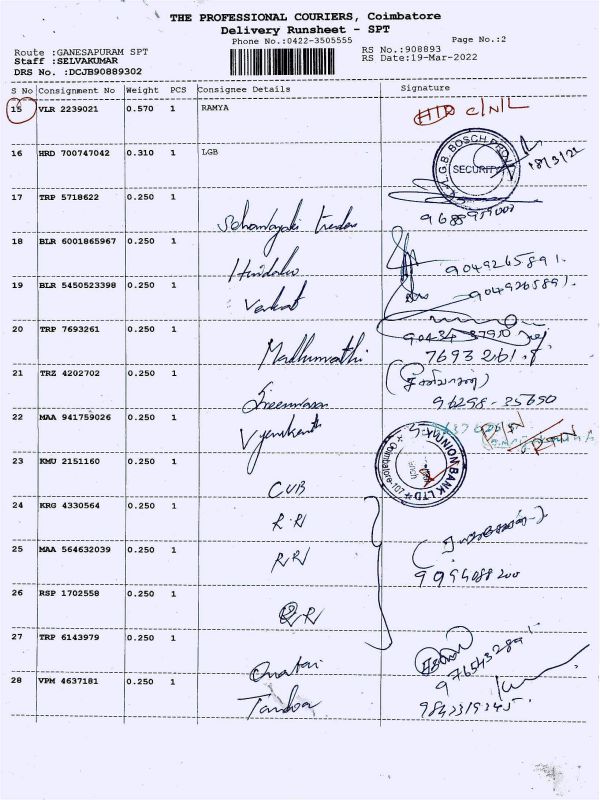 THE PROFESSIONAL COURIERS, Coimbatore
Delivery Runsheet - SPT
Phone No.:0422-3505555
Page No.:2
Route :GANESAPURAM SPT
RS No.:908893
Staff :SELVAKUMAR
RS Date:19-Mar-2022
DRS No. :DCJB90889302
S No Consignment No Weight PCS Consignee Details Signature
15 VLR 2239021 0.570 1 RAMYA
16 HRD 700747042 0.310 1 LGB
L.G.B. BOSCH
SECURITY
18/3/22
17 TRP 5718622 0.250 1
18 BLR 6001865967 0.250 1
9049265891.
19 BLR 5450523398 0.250 1 Venkat
9049265891.
20 TRP 7693261 0.250 1 Madhumathi
21 TRZ 4202702 0.250 1 Sreenivasan
96298-35650
22 MAA 941759026 0.250 1
UNION BANK LTD
Coimbatore
23 KMU 2151160 0.250 1 CUB
24 KRG 4330564 0.250 1 R.R
25 MAA 564632039 0.250 1 RR
9094088200
26 RSP 1702558 0.250 1 RR
27 TRP 6143979 0.250 1
9765432891
28 VPM 4637181 0.250 1
9842319245.